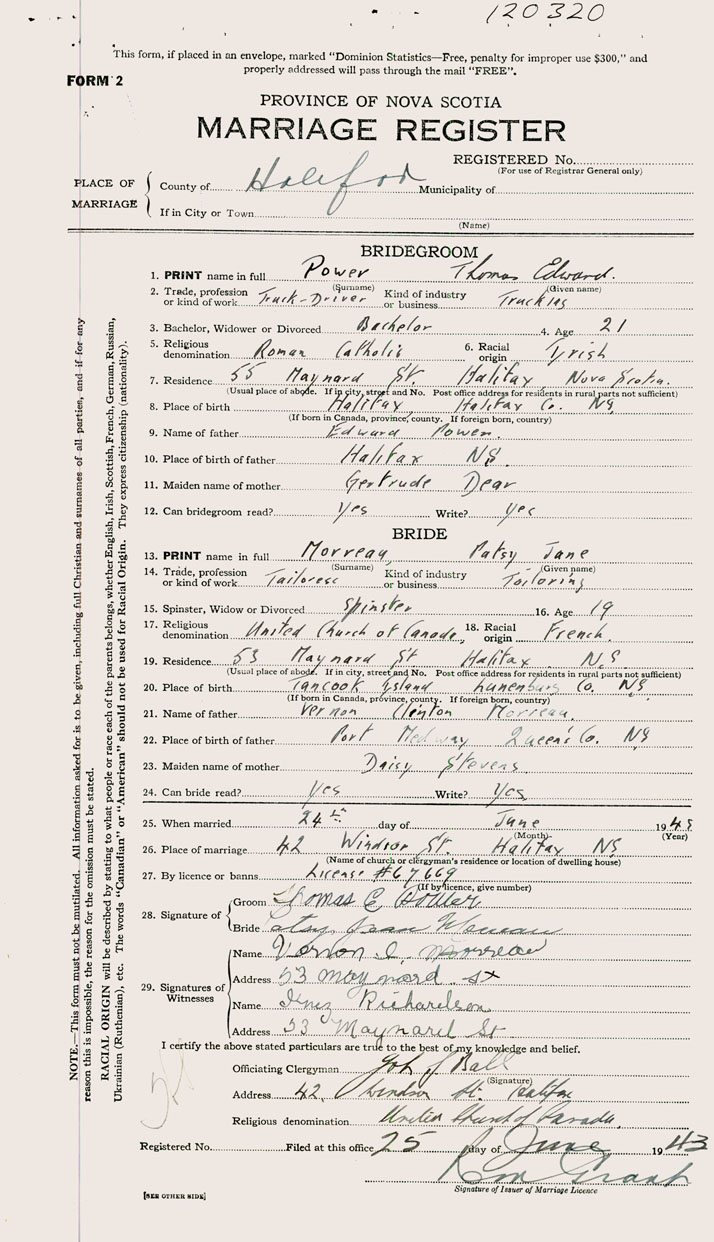 120320
This form, if placed in an envelope, marked "Dominion Statistics—Free, penalty for improper use $300," and
properly addressed will pass through the mail "FREE".
FORM 2
PROVINCE OF NOVA SCOTIA
MARRIAGE REGISTER
REGISTERED No.
(For use of Registrar General only)
PLACE OF MARRIAGE
County of Halifax Municipality of
If in City or Town
(Name)
BRIDEGROOM
1. PRINT name in full Power Thomas Edward.
(Surname) (Given name)
2. Trade, profession or kind of work Truck-Driver Kind of industry or business Trucking
3. Bachelor, Widower or Divorced Bachelor 4. Age 21
5. Religious denomination Roman Catholic 6. Racial origin Irish
7. Residence 55 Maynard St. Halifax Nova Scotia.
(Usual place of abode. If in city, street and No. Post office address for residents in rural parts not sufficient)
8. Place of birth Halifax Halifax Co. NS
(If born in Canada, province, county. If foreign born, country)
9. Name of father Edward Power.
10. Place of birth of father Halifax NS
11. Maiden name of mother Gertrude Dear
12. Can bridegroom read? yes Write? yes
BRIDE
13. PRINT name in full Morreau, Patsy Jane
(Surname) (Given name)
14. Trade, profession or kind of work Tailoress Kind of industry or business Tailoring
15. Spinster, Widow or Divorced Spinster 16. Age 19
17. Religious denomination United Church of Canada, 18. Racial origin French.
19. Residence 53 Maynard St Halifax N.S.
(Usual place of abode. If in city, street and No. Post office address for residents in rural parts not sufficient)
20. Place of birth Tancook Island Lunenburg Co. NS
(If born in Canada, province, county. If foreign born, country)
21. Name of father Vernon Clenton Morreau.
22. Place of birth of father Port Medway Queen's Co. NS
23. Maiden name of mother Daisy Stevens
24. Can bride read? Yes Write? Yes
25. When married 24th day of June 1943
(Month) (Year)
26. Place of marriage 42 Windsor St. Halifax NS
(Name of church or clergyman's residence or location of dwelling house)
27. By licence or banns License #67669
(If by licence, give number)
28. Signature of
Groom Thomas E Power
Bride Jean
29. Signatures of Witnesses
Name Vernon C. Morreau
Address 53 Maynard St
Name Inez Richardson
Address 53 Maynard St
I certify the above stated particulars are true to the best of my knowledge and belief.
Officiating Clergyman Ball
(Signature)
Address 42, Windsor St. Halifax
Religious denomination United Church of Canada.
Registered No. Filed at this office 25 day of June 1943
Grant
Signature of Issuer of Marriage Licence
[SEE OTHER SIDE]
NOTE.—This form must not be mutilated. All information asked for is to be given, including full Christian and surnames of all parties, and if for any
reason this is impossible, the reason for the omission must be stated.
RACIAL ORIGIN will be described by stating to what people or race each of the parents belongs, whether English, Irish, Scottish, French, German, Russian,
Ukrainian (Ruthenian), etc. The words "Canadian" or "American" should not be used for Racial Origin. They express citizenship (nationality).